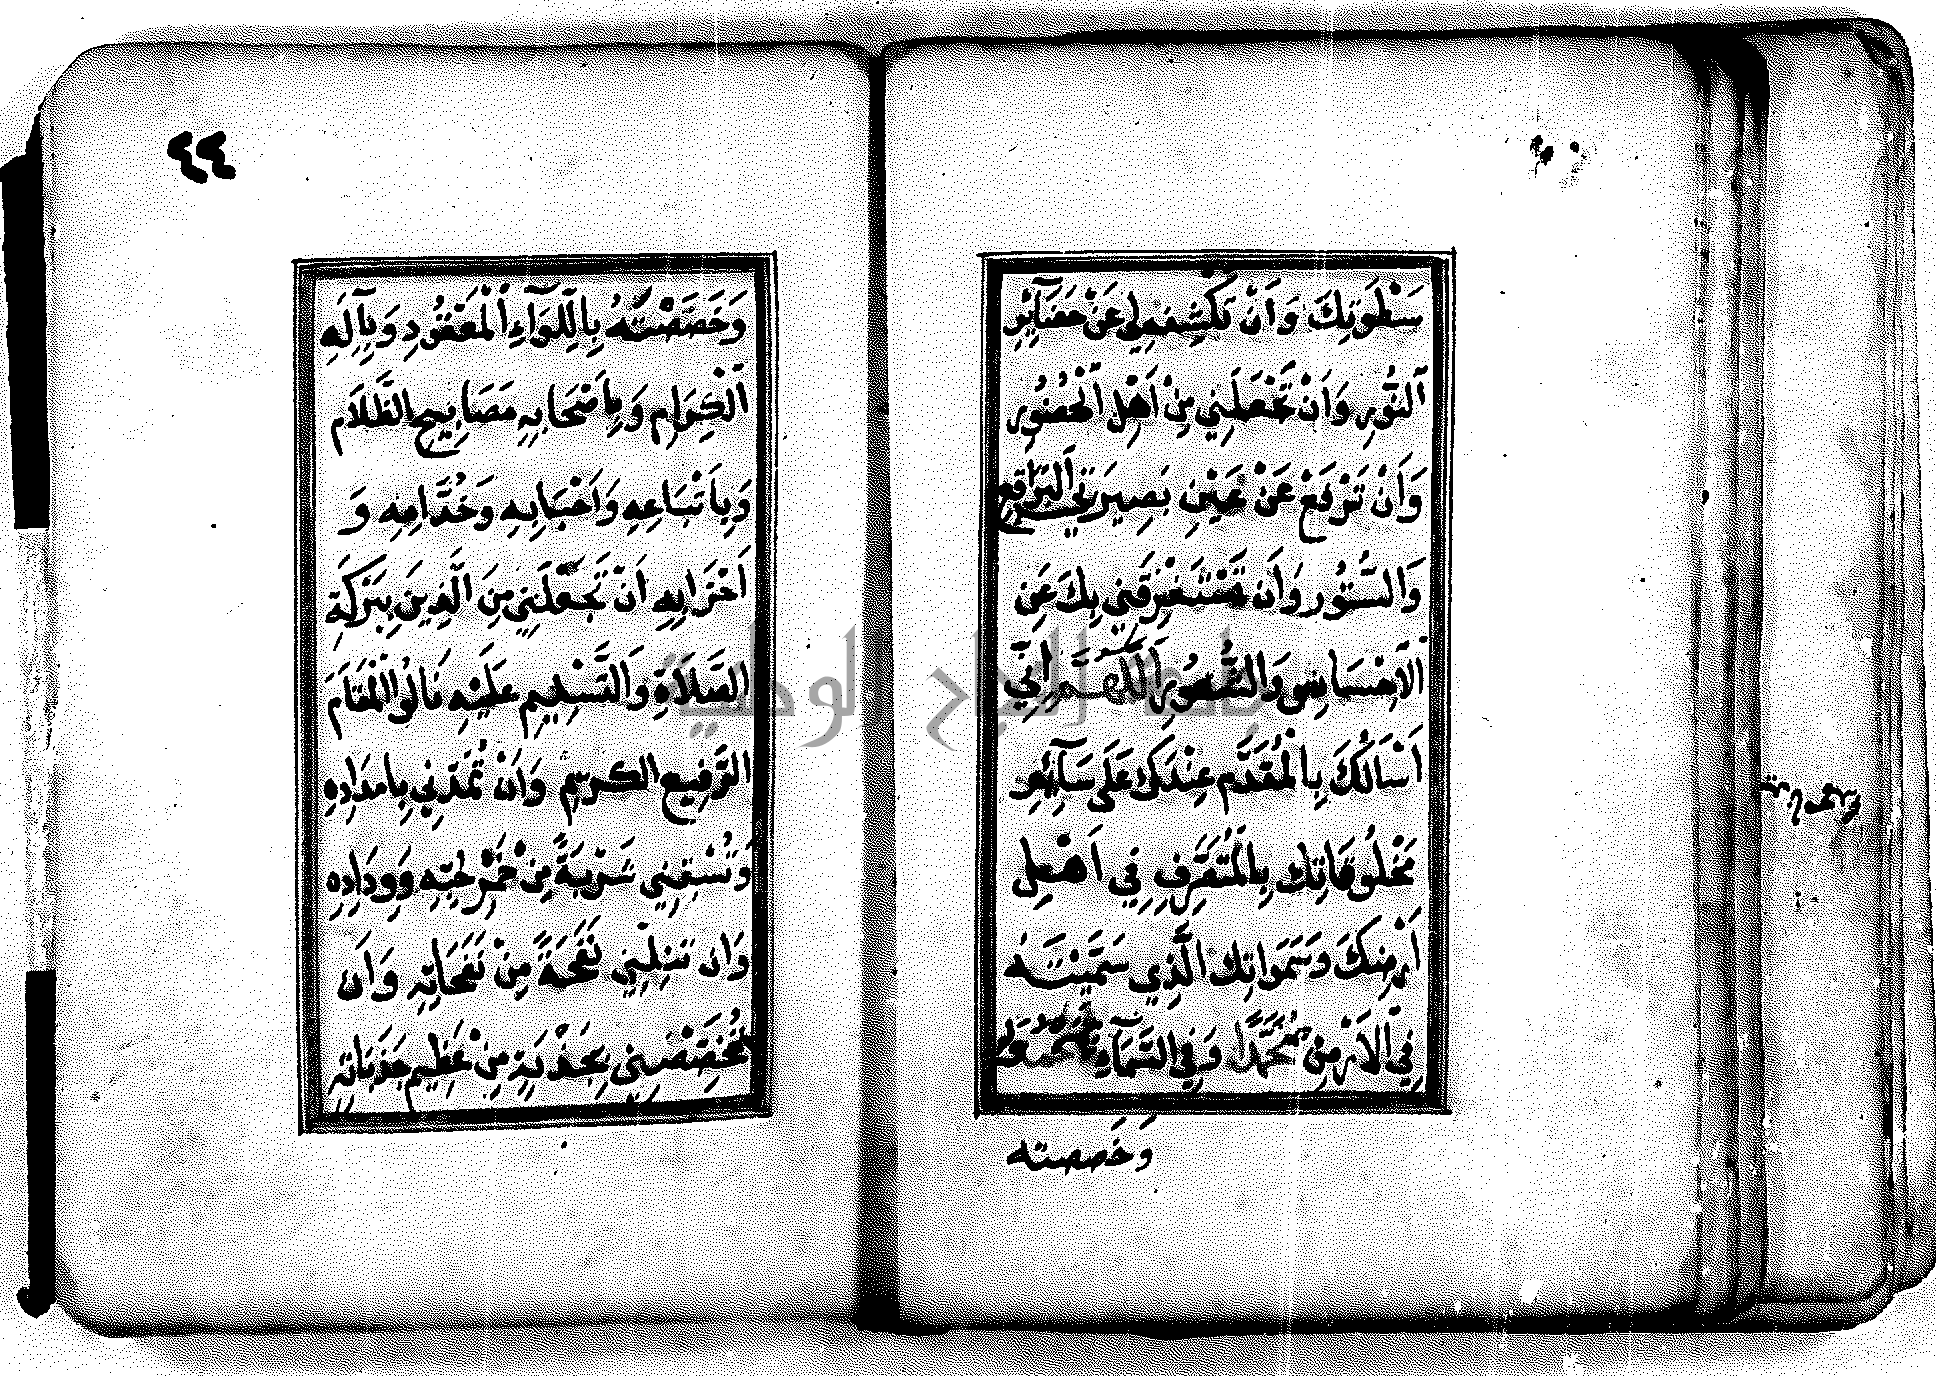 سَطْوَتِكَ وَاَنْ تَكْشِفَ لِي عَنْ حَضَآئِرِ
اَلنُّورِ وَاَنْ تَجْعَلَنِي مِنْ اَهْلِ اَلْحُضُورِ
وَاَنْ تَرْفَعَ عَنْ عَيْنِ بَصِيرَتِي اَلْبَرَاقِعَ
وَالسُّتُورَ وَاَنْ تَسْتَغْرِقَنِي بِكَ عَنِ
اَلْاِحْسَاسِ وَالشُّعُورِ اَللّٰهُمَّ اِنِّي
اَسْاَلُكَ بِالْمُقَدَّمِ عِنْدَكَ عَلَى سَآئِرِ
مَخْلُوقَاتِكَ بِالْمُتَصَرِّفِ فِي اَهْلِ
اَرْضِكَ وَسَمَوَاتِكَ الَّذِي سَمَّيْتَهُ
فِي الْاَرْضِ مُحَمَّدًا وَفِي السَّمَآءِ
وَخَصَصْتَهُ
٤٤
وَخَصَصْتَهُ بِاللِّوَآءِ الْمَعْقُودِ وَبِآلِهِ
اَلْكِرَامِ وَبِاَصْحَابِهِ مَصَابِيحِ الظَّلَامِ
وَبِاَتْبَاعِهِ وَاَحْبَابِهِ وَخُدَّامِهِ وَ
اَحْزَابِهِ اَنْ تَجْعَلَنِي مِنَ الَّذِينَ بِبَرَكَةِ
الصَّلَاةِ وَالتَّسْلِيمِ عَلَيْهِ نَالُوا الْمَقَامَ
الرَّفِيعَ الْكَرِيمَ وَاَنْ تُمِدَّنِي بِاِمْدَادِهِ
وَتُسْقِنِي شَرْبَةً مِنْ خَمْرِ حُبِّهِ وَوِدَادِهِ
وَاَن تُنِلَنِي نَفْحَةً مِنْ نَفَحَاتِهِ وَاَن
تُخَصِّصَنِي بِجَذْبَةٍ مِنْ عَظِيمِ جَذَبَاتِهِ